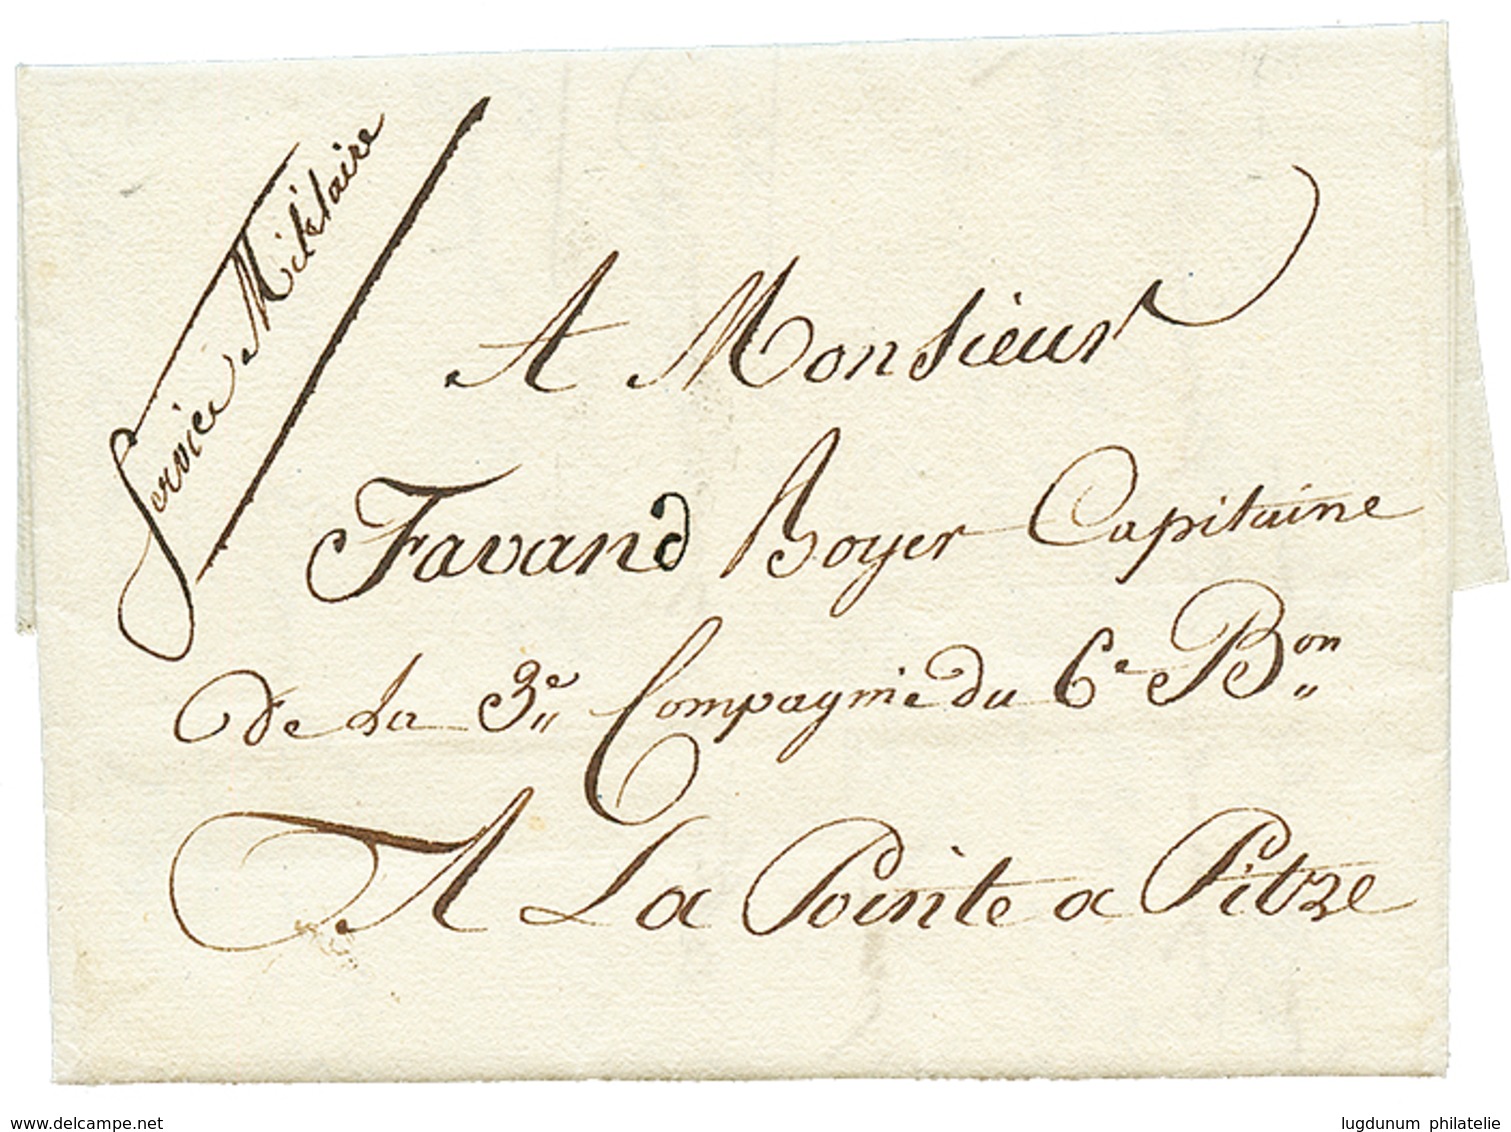 Service Militaire
A Monsieur
Favand Boyer Capitaine
De La 3e Compagnie du 6e Bon
A La Pointe a Pitre
www.delcampe.net
lugdunum philatelie